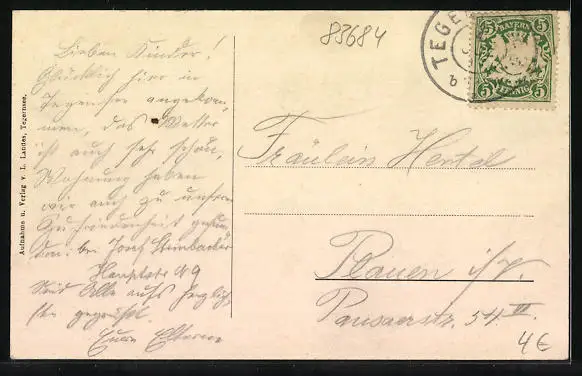 83684
Lieben Kinder!
Glücklich hier in
Tegernsee angekom,
men, das Wetter
ist auch sehr schön,
Wohnung haben
wir auch zu unserer
Zufriedenheit gefun,
den. bei Josef Steinbacher
Hauptstr 49
Seid Alle aufs herzlich,
ste gegrüßt.
Eure Eltern
Aufnahme u. Verlag v. L. Landes, Tegernsee.
TEGE
b
BAYERN
5 5
5 PFENNIG 5
Fräulein Hertel
Plauen i/V.
Pausaerstr. 54 VI.
4€